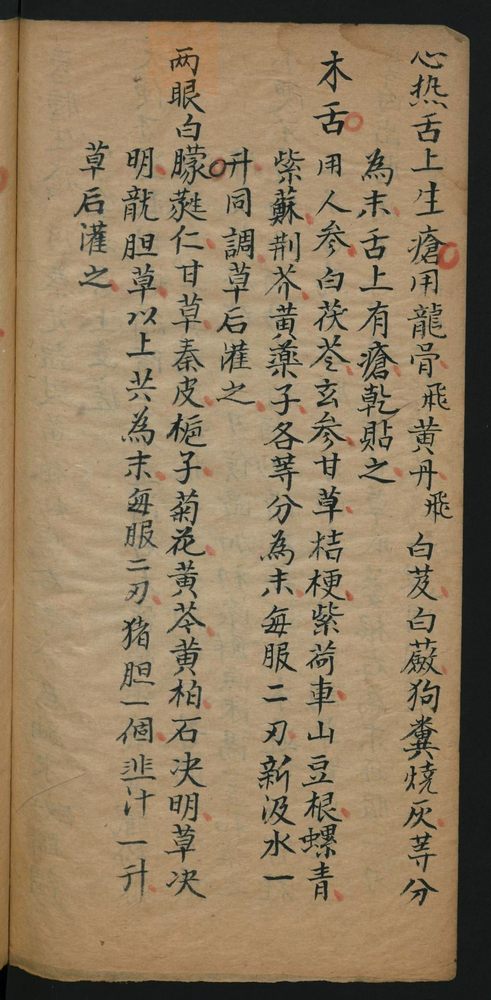 心热舌上生瘡用龍骨飛黄丹飛白芨白蘞狗糞燒灰等分
為末舌上有瘡乾貼之
木舌用人参白茯苓玄参甘草桔梗紫荷車山豆根螺青
紫蘇荆芥黄藥子各等分為末每服二刃新汲水一
升同調草后灌之
两眼白朦蕤仁甘草秦皮梔子菊花黄芩黄柏石决明草决
明龍胆草以上共為末每服二刃猪胆一個韭汁一升
草后灌之